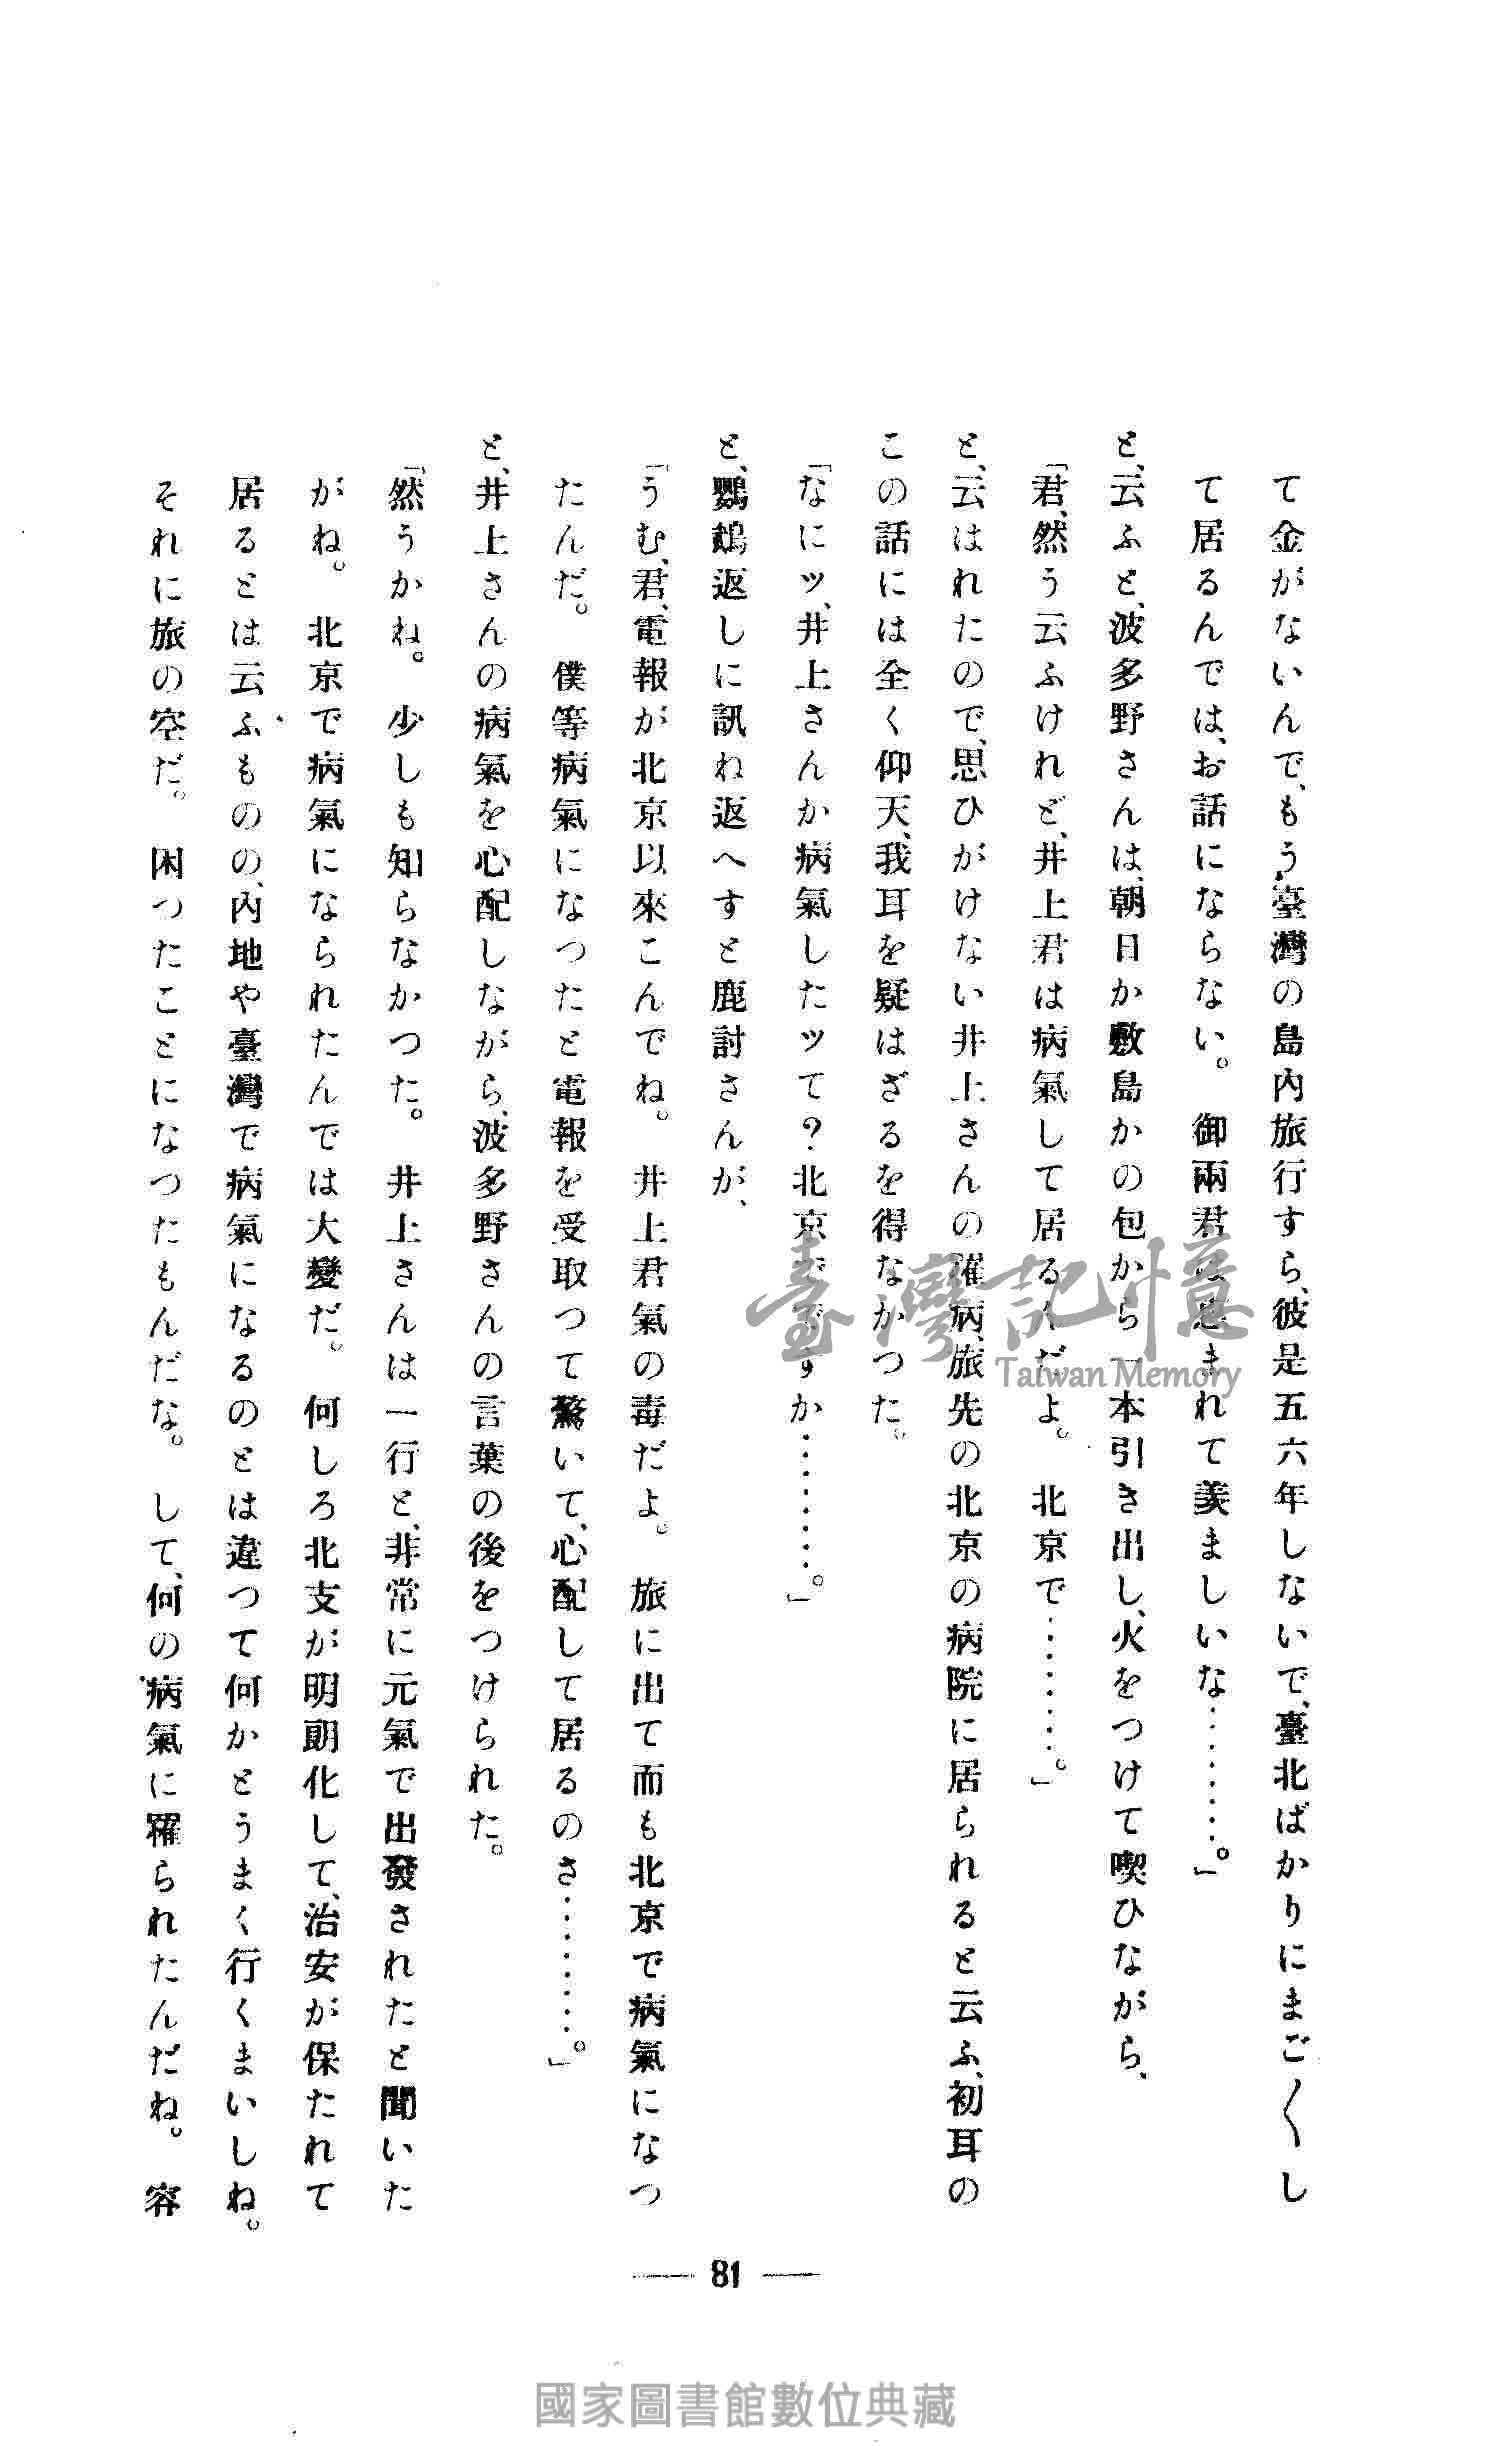 て金がないんで、もう、臺灣の島內旅行すら、彼是五六年しないで、臺北ばかりにまご〱し
て居るんでは、お話にならない。　御兩君は惠まれて羨ましいな………。」
と、云ふと、波多野さんは、朝日か敷島かの包から一本引き出し、火をつけて喫ひながら、
「君、然う云ふけれど、井上君は病氣して居るんだよ。　北京で………。」
と、云はれたので、思ひがけない井上さんの罹病、旅先の北京の病院に居られると云ふ、初耳の
この話には全く仰天、我耳を疑はざるを得なかつた。
「なにッ、井上さんか病氣したッて？北京でですか………。」
と、鸚鵡返しに訊ね返へすと鹿討さんが、
「うむ、君、電報が北京以來こんでね。　井上君氣の毒だよ。　旅に出て而も北京で病氣になつ
たんだ。　僕等病氣になつたと電報を受取つて驚いて、心配して居るのさ………。」
と、井上さんの病氣を心配しながら、波多野さんの言葉の後をつけられた。
「然うかね。　少しも知らなかつた。　井上さんは一行と、非常に元氣で出發されたと聞いた
がね。　北京で病氣になられたんでは大變だ。　何しろ北支が明朗化して、治安が保たれて
居るとは云ふものの、內地や臺灣で病氣になるのとは違つて何かとうまく行くまいしね。
それに旅の空だ。　困つたことになつたもんだな。　して、何の病氣に罹られたんだね。　容
81
臺灣記憶
Taiwan Memory
國家圖書館數位典藏